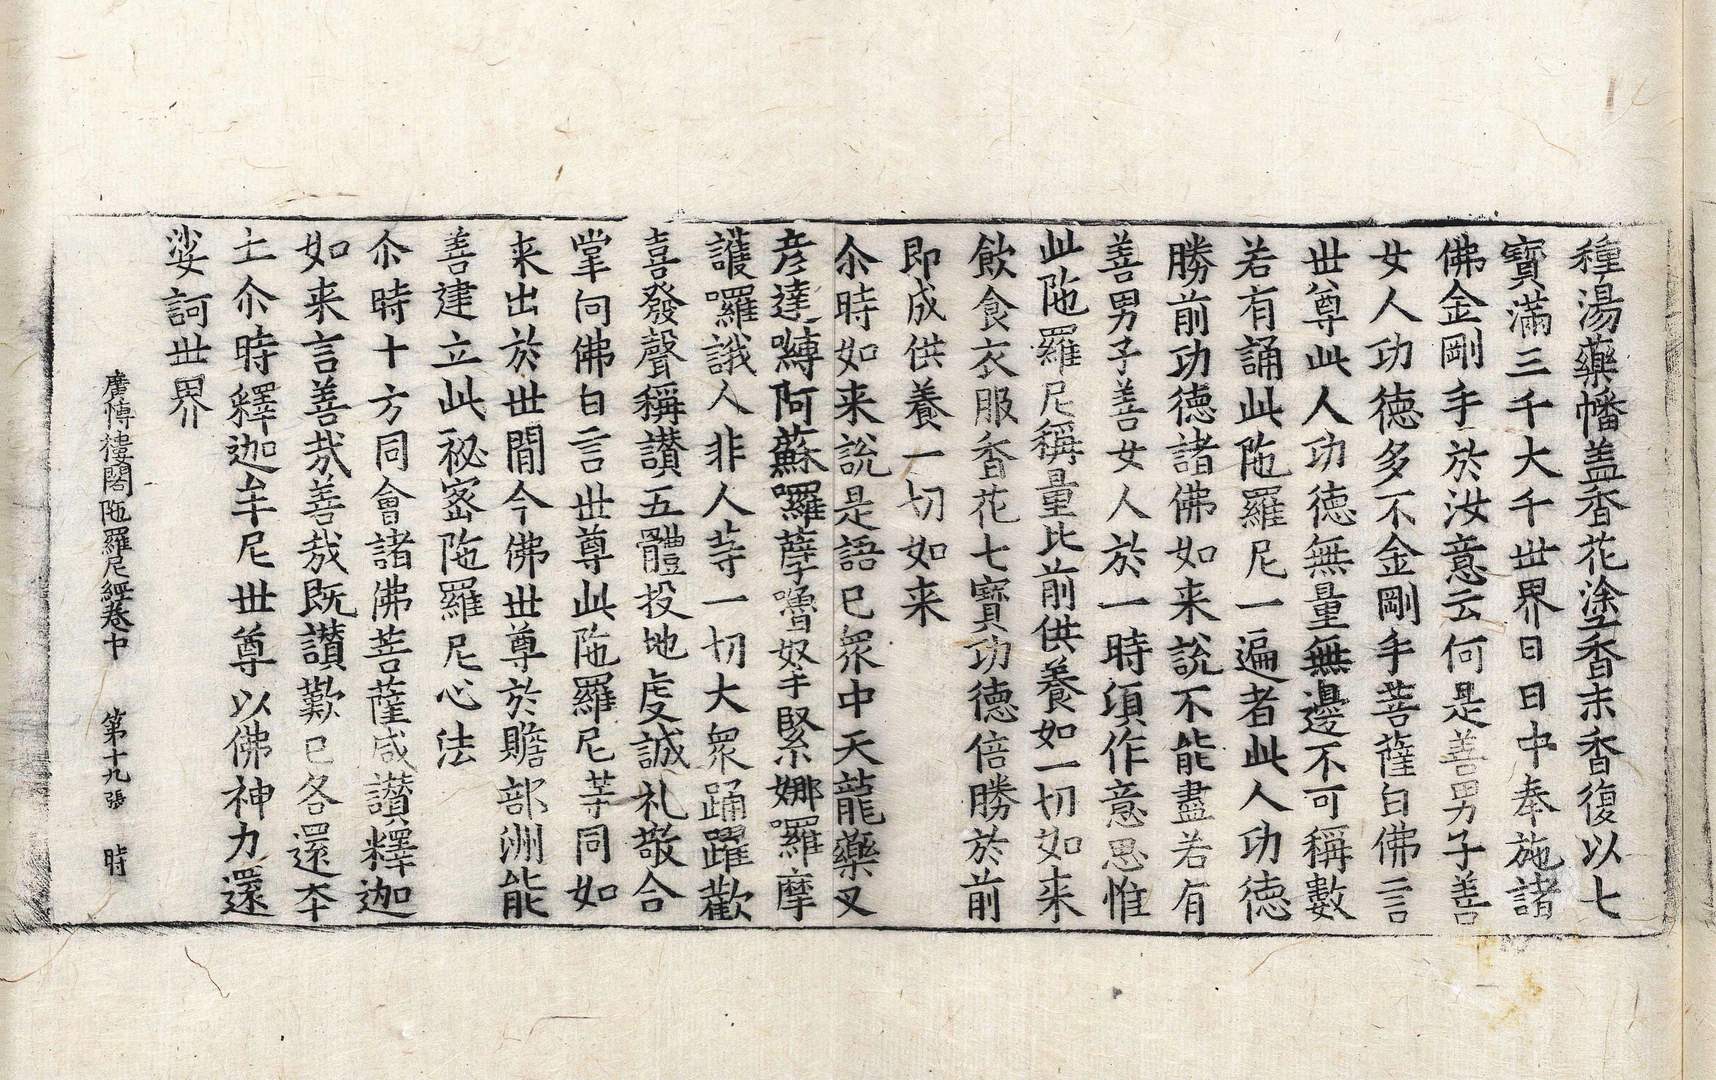 種湯藥幡盖香花塗香末香復以七
寶滿三千大千世界日日中奉施諸
佛金剛手於汝意云何是善男子善
女人功徳多不金剛手菩薩白佛言
世尊此人功徳無量無邊不可稱數
若有誦此陁羅尼一遍者此人功徳
勝前功徳諸佛如来說不能盡若有
善男子善女人於一時頃作意思惟
此陁羅尼稱量比前供養如一切如来
飲食衣服香花七寶功德倍勝於前
即成供養一切如来
尒時如来說是語已衆中天龍藥叉
彦達嚩阿蘇囉孽嚕拏緊娜囉摩
護囉誐人非人等一切大衆踊躍歡
喜發聲稱讃五體投地虔誠礼敬合
掌向佛白言世尊此陁羅尼等同如
来出於世間今佛世尊於贍部洲能
善建立此祕密陁羅尼心法
尒時十方同會諸佛菩薩咸讃釋迦
如来言善㢤善㢤既讃歎已各還本
土尒時釋迦牟尼世尊以佛神力還
娑訶世界
廣愽樓閣陁羅尼經卷中 第十九張 時